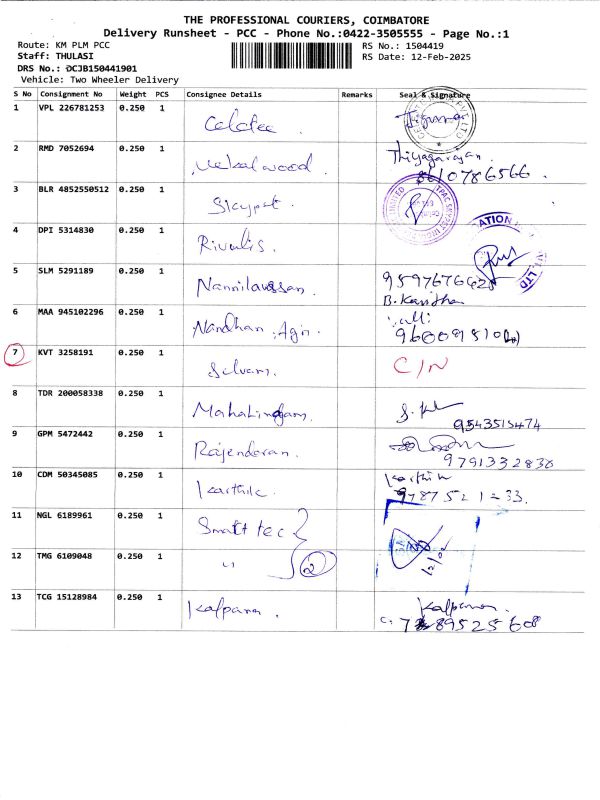 THE PROFESSIONAL COURIERS, COIMBATORE
Delivery Runsheet - PCC - Phone No.:0422-3505555 - Page No.:1
Route: KM PLM PCC RS No.: 1504419
Staff: THULASI RS Date: 12-Feb-2025
DRS No.: DCJB150441901
Vehicle: Two Wheeler Delivery
S No Consignment No Weight PCS Consignee Details Remarks Seal & Signature
1 VPL 226781253 0.250 1
2 RMD 7052694 0.250 1 Thiyagarajan
8610786566
3 BLR 4852550512 0.250 1 Skypet
4 DPI 5314830 0.250 1 Rivulis
5 SLM 5291189 0.250 1
B. Kavitha
6 MAA 945102296 0.250 1 Nandhan Agri
7 KVT 3258191 0.250 1 Selvam C/N
8 TDR 200058338 0.250 1 Mahalingam
9543515474
9 GPM 5472442 0.250 1 Rajendaran
9791332838
10 CDM 50345085 0.250 1 Karthik Karthik
11 NGL 6189961 0.250 1 Smart tec
12 TMG 6109048 0.250 1 " 2
12/02
13 TCG 15128984 0.250 1 Kalpana Kalpana